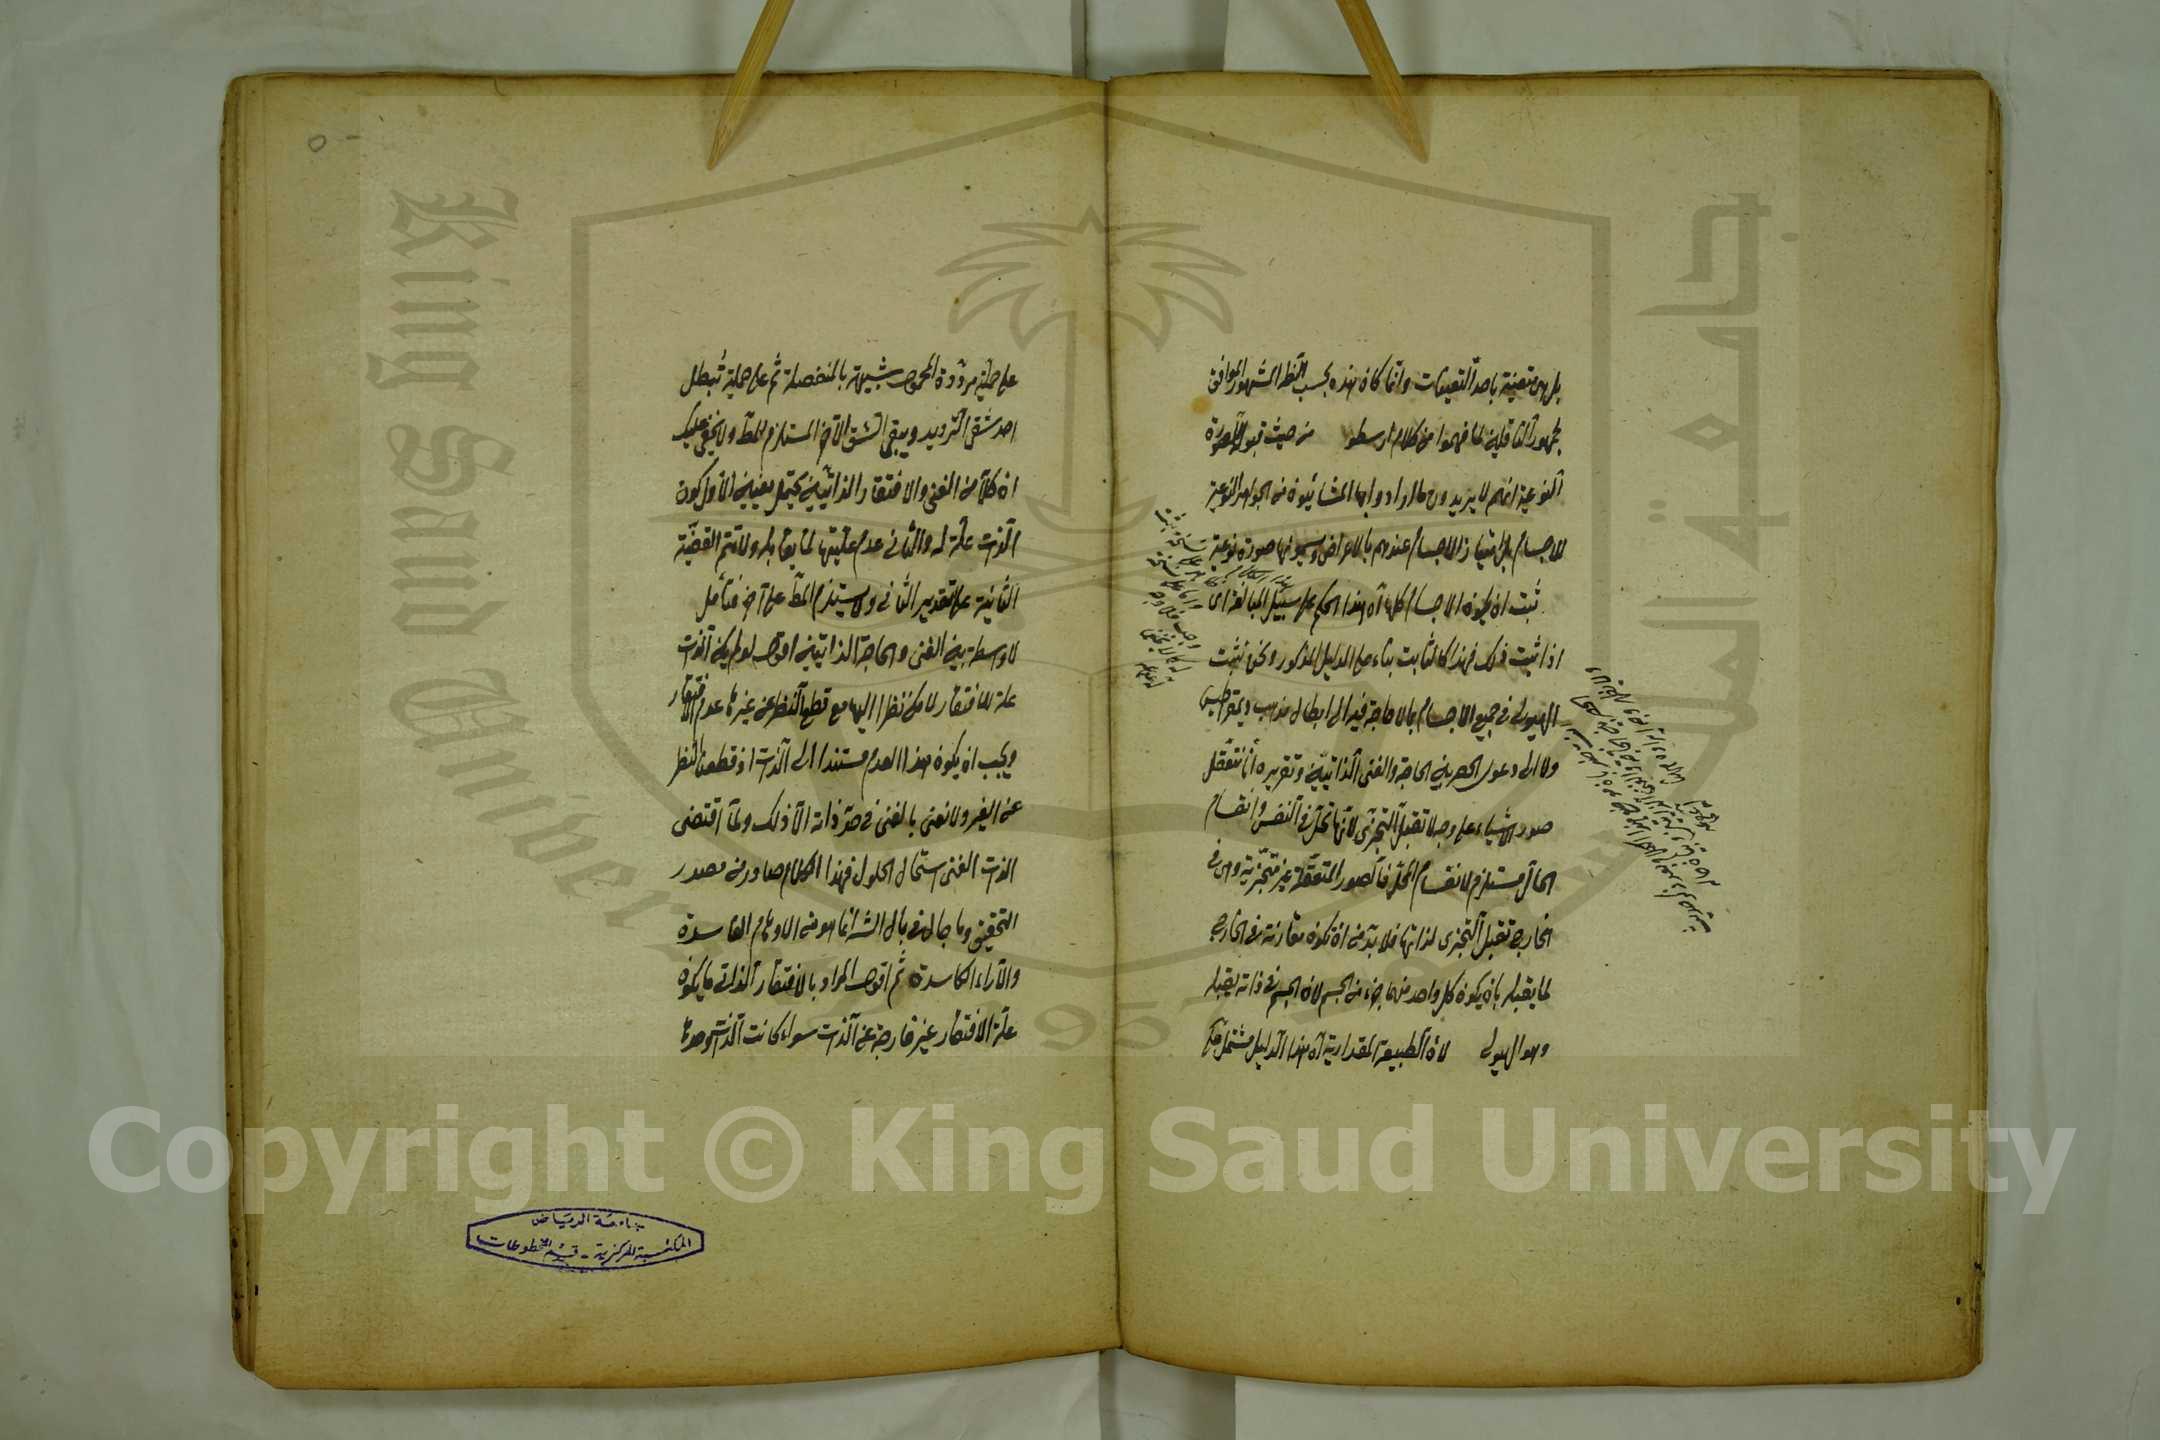 بل هى متعينة باحد التعينات وانما كان هذه بحسب النظر المشهور الموافق
لجمهور الناقلين لما فهموا من كلام ارسطو من حيث قبول الصورة
النوعية انهم لا يريدون ما ارادوا بها المشائيون من الجواهر النوعية
للاجسام بل امتياز الاجسام عندهم بالاعراض وسموها صورة نوعية
ثبت ان يكون الاجسام كلها آه هذا الحكم على سبيل المبالغة اى
اذا ثبت ذلك فهذا كالثابت بناء على الدليل المذكور ونحن نثبت
الهيولى فى جميع الاجسام بما لا حاجة فيه الى ابطال مذهب ذيمقراطيس
ولا الى دعوى الحصر بين الحاجة والغنى الذاتيين وتقريره انا نتعقل
صور الاشياء على وجه لا تقبل التجزى لانها تحل فى النفس وانقسام
الحال مستلزم لانقسام المحل فالصور المتعقلة غير متجزية وهى فى
الخارج تقبل التجزى لذاتها فلا بد من ان تكون مقارنة فى الخارج
لما يقبله بان يكون كل واحد منهما جزء من الجسم لان الجسم فى ذاته يقبله
وهو الهيولى لان الطبيعة المقدارية آه هذا الدليل مشتمل
على حملية مرددة المحمول شبيهة بالمنفصلة ثم على حملية تبطل
احد شقى الترديد ويبقى الشق الآخر المستلزم للمط ولا يخفى عليك
ان كلا من الغنى والافتقار الذاتيين يحتمل معنيين الاول كون
الذات علة له والثانى عدم عليتها لما يقابله ولا تتم القضية
الثانية على تقدير الثانى ولا يستلزم المط على آخر فتأمل
لا وسطة بين الغنى والحاجة الذاتيين اقول لو لم يكن الذات
علة للافتقار لامكن نظرا اليها مع قطع النظر عن غيرها عدم الافتقار
ويجب ان يكون هذا العدم مستندا الى الذات اذ قطعنا النظر
عن الغير ولا نعنى بالغنى فى حد ذاته الا ذلك ولما اقتضى
الذات الغنى استحال الحلول فهذا الكلام صادر من مصدر
التحقيق وما جال فى بال الش انما هو من الاوهام الفاسدة
والآراء الكاسدة ثم اقول المراد بالافتقار الذاتى ما يكون
علة الافتقار غير خارجة عن الذات سواء كانت الذات وحدها
جامعة الرياض
المكتبة المركزية - قسم المخطوطات
King Saud University
جامعة الملك سعود
1957
Copyright © King Saud University